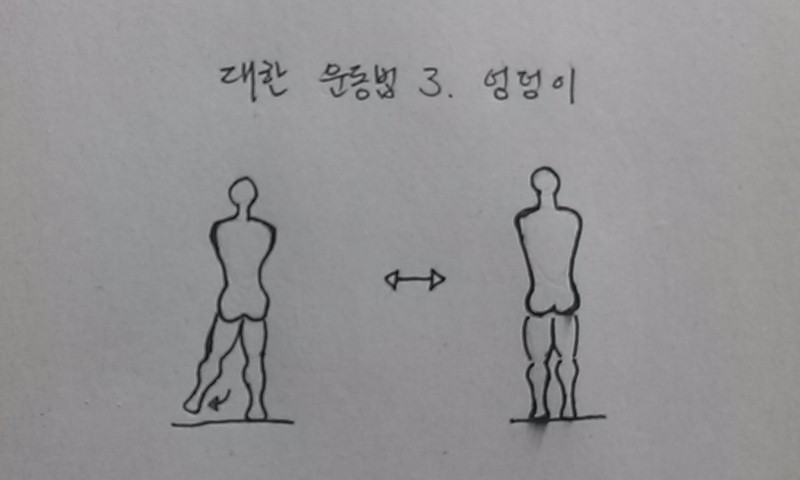 대한 운동법 3. 엉덩이